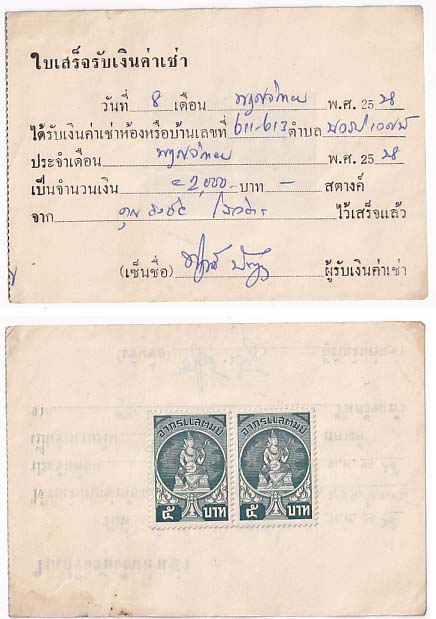 ใบเสร็จรับเงินค่าเช่า
วันที่ 8 เดือน พฤศจิกายน พ.ศ. 25
ได้รับเงินค่าเช่าห้องหรือบ้านเลขที่ 611-613 ตำบล
ประจำเดือน พฤศจิกายน พ.ศ. 25
เป็นจำนวนเงิน =2,000- บาท — สตางค์
จาก คุณ ไว้เสร็จแล้ว
(เซ็นชื่อ) ผู้รับเงินค่าเช่า
อากรแสตมป์ อากรแสตมป์
๕ บาท ๕ บาท